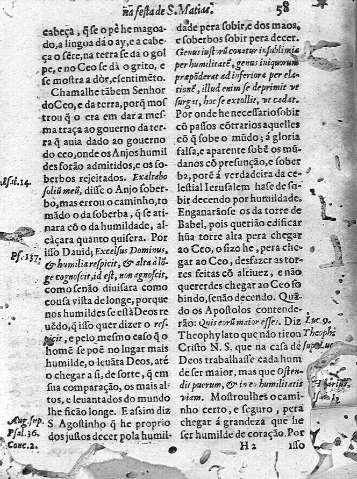 na festa de S. Matias. 58
cabeça, q̃ se o pè he magoa-
do, a lingoa dá o ay, e a cabe-
ça o sẽte, na terra se dà o gol-
pe, e no Ceo se dà o grito, e
se mostra a dòr, e sentimẽto.
Chamalhe tãbem Senhor
do Ceo, e da terra, porq̃ mos
trou q̃ o cra em dar a mes-
ma traça ao governo da terra
q̃ auia dado ao governo
do ceo, onde os Anjos humil
des forão admitidos, e os so-
berbos rejeitados. Exaltabo
Isai. 14.
solium meũ, disse o Anjo sober-
bo, mas errou o caminho, to
mãdo o da soberba, q̃ se ati-
nara cõ o da humildade, al-
cãçara quanto quisera. Por
isso Dauid; Excelsus Dominus,
Ps. 137.
& humilia respicit, & alta à lõ-
ge cognoscit, id est, non agnoscit,
como senão diuisara como
cousa vista de longe, porque
nos humildes se està Deus re
uẽdo, q̃ isso quer dizer o res-
picit, e pelo mesmo caso q̃ o
homẽ se poẽ no lugar mais
humilde, o leuãta Deus, atè
o chegar a si, de sorte, q̃ em
sua comparação, os mais al-
tos, e leuantados do mundo
lhe ficão longe. E assim diz
Aug. sup.
S. Agostinho q̃ he proprio
Psal. 36.
dos justos decer pola humil-
Conc. 2.
dade pera sobir, e dos maos,
e soberbos sobir pera decer.
Genus iustorũ conatur in sublimia
per humilitatẽ, genus iniquorum
præpõderat ad inferiora per ela-
tionẽ, illud enim se deprimit ve
surgat, hoc se extollit, vt cadat.
Por onde he necessario sobir
cõ passos cõtrarios aquelles
cõ q̃ sobe o mũdo; á gloria
falsa, e aparente sobẽ os mũ-
danos cõ presunção, e sober
ba, porẽ á verdadeira da ce-
lestial Ierusalem hase de so-
bir decendo por humildade.
Enganarãose os da torre de
Babel, pois querião edificar
hũa torre alta pera chegar
ao Ceo, q̃ fizo lhe, pera che-
gar ao Ceo, desfazer as tor-
res feitas cõ altiuez, e não
quererdes chegar ao Ceo so
bindo, senão decendo. Quã-
do os Apostolos contende-
rão: Quis eorũ maior esset. Diz
Luc. 9.
Theophylato que não tirou
Theophi.
Cristo N. S. que na casa de
sup. Luc.
Deus trabalhasse cada hum
de ser maior, mas que osten-
dit puerum, & in eo humilitatis
viam. Mostroulhes o cami-
nho certo, e seguro, pera
chegar á grandeza que he
ser humilde de coração. Por
H 2 isso